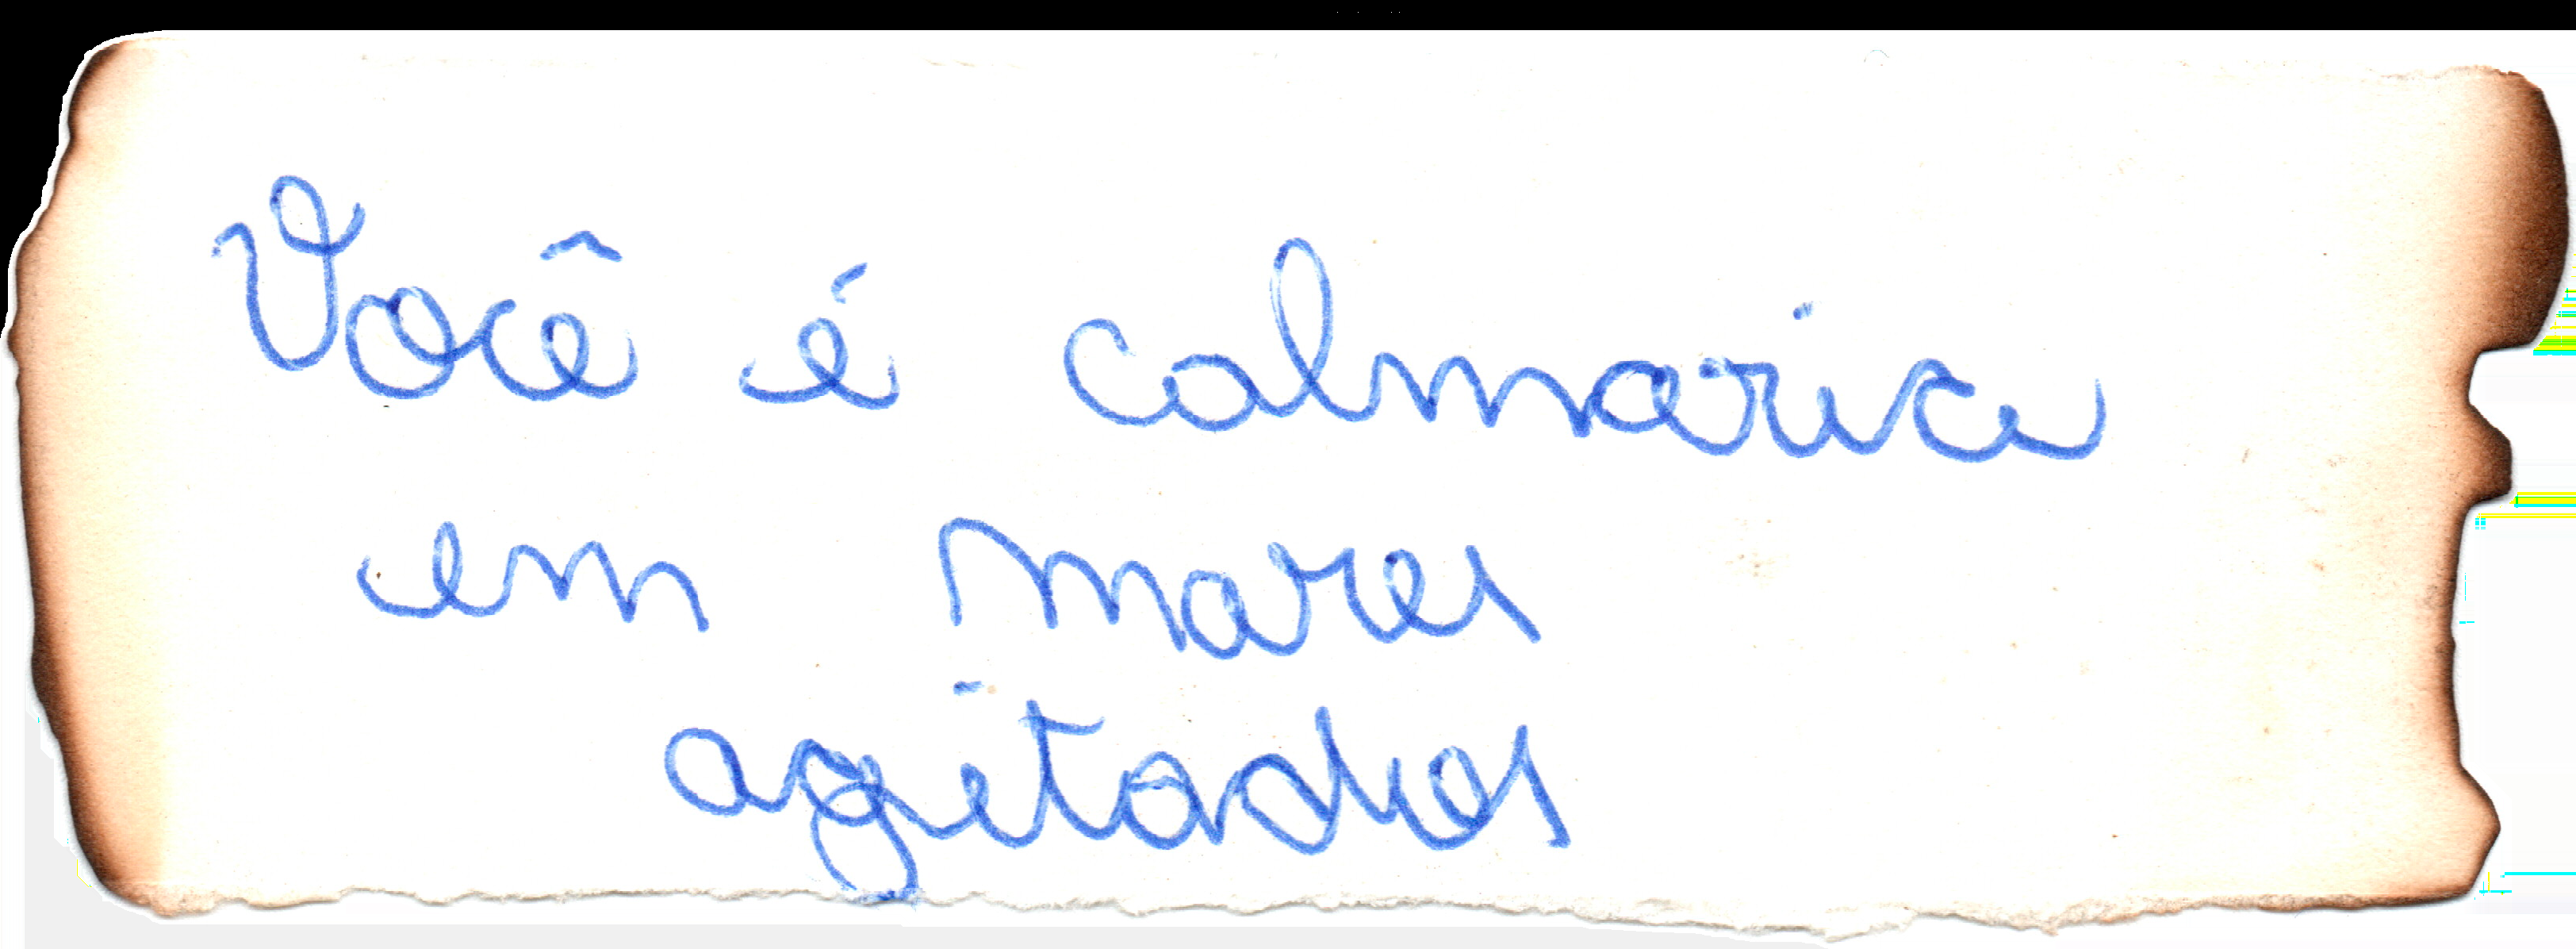 Você é calmaria
em mares
agitados